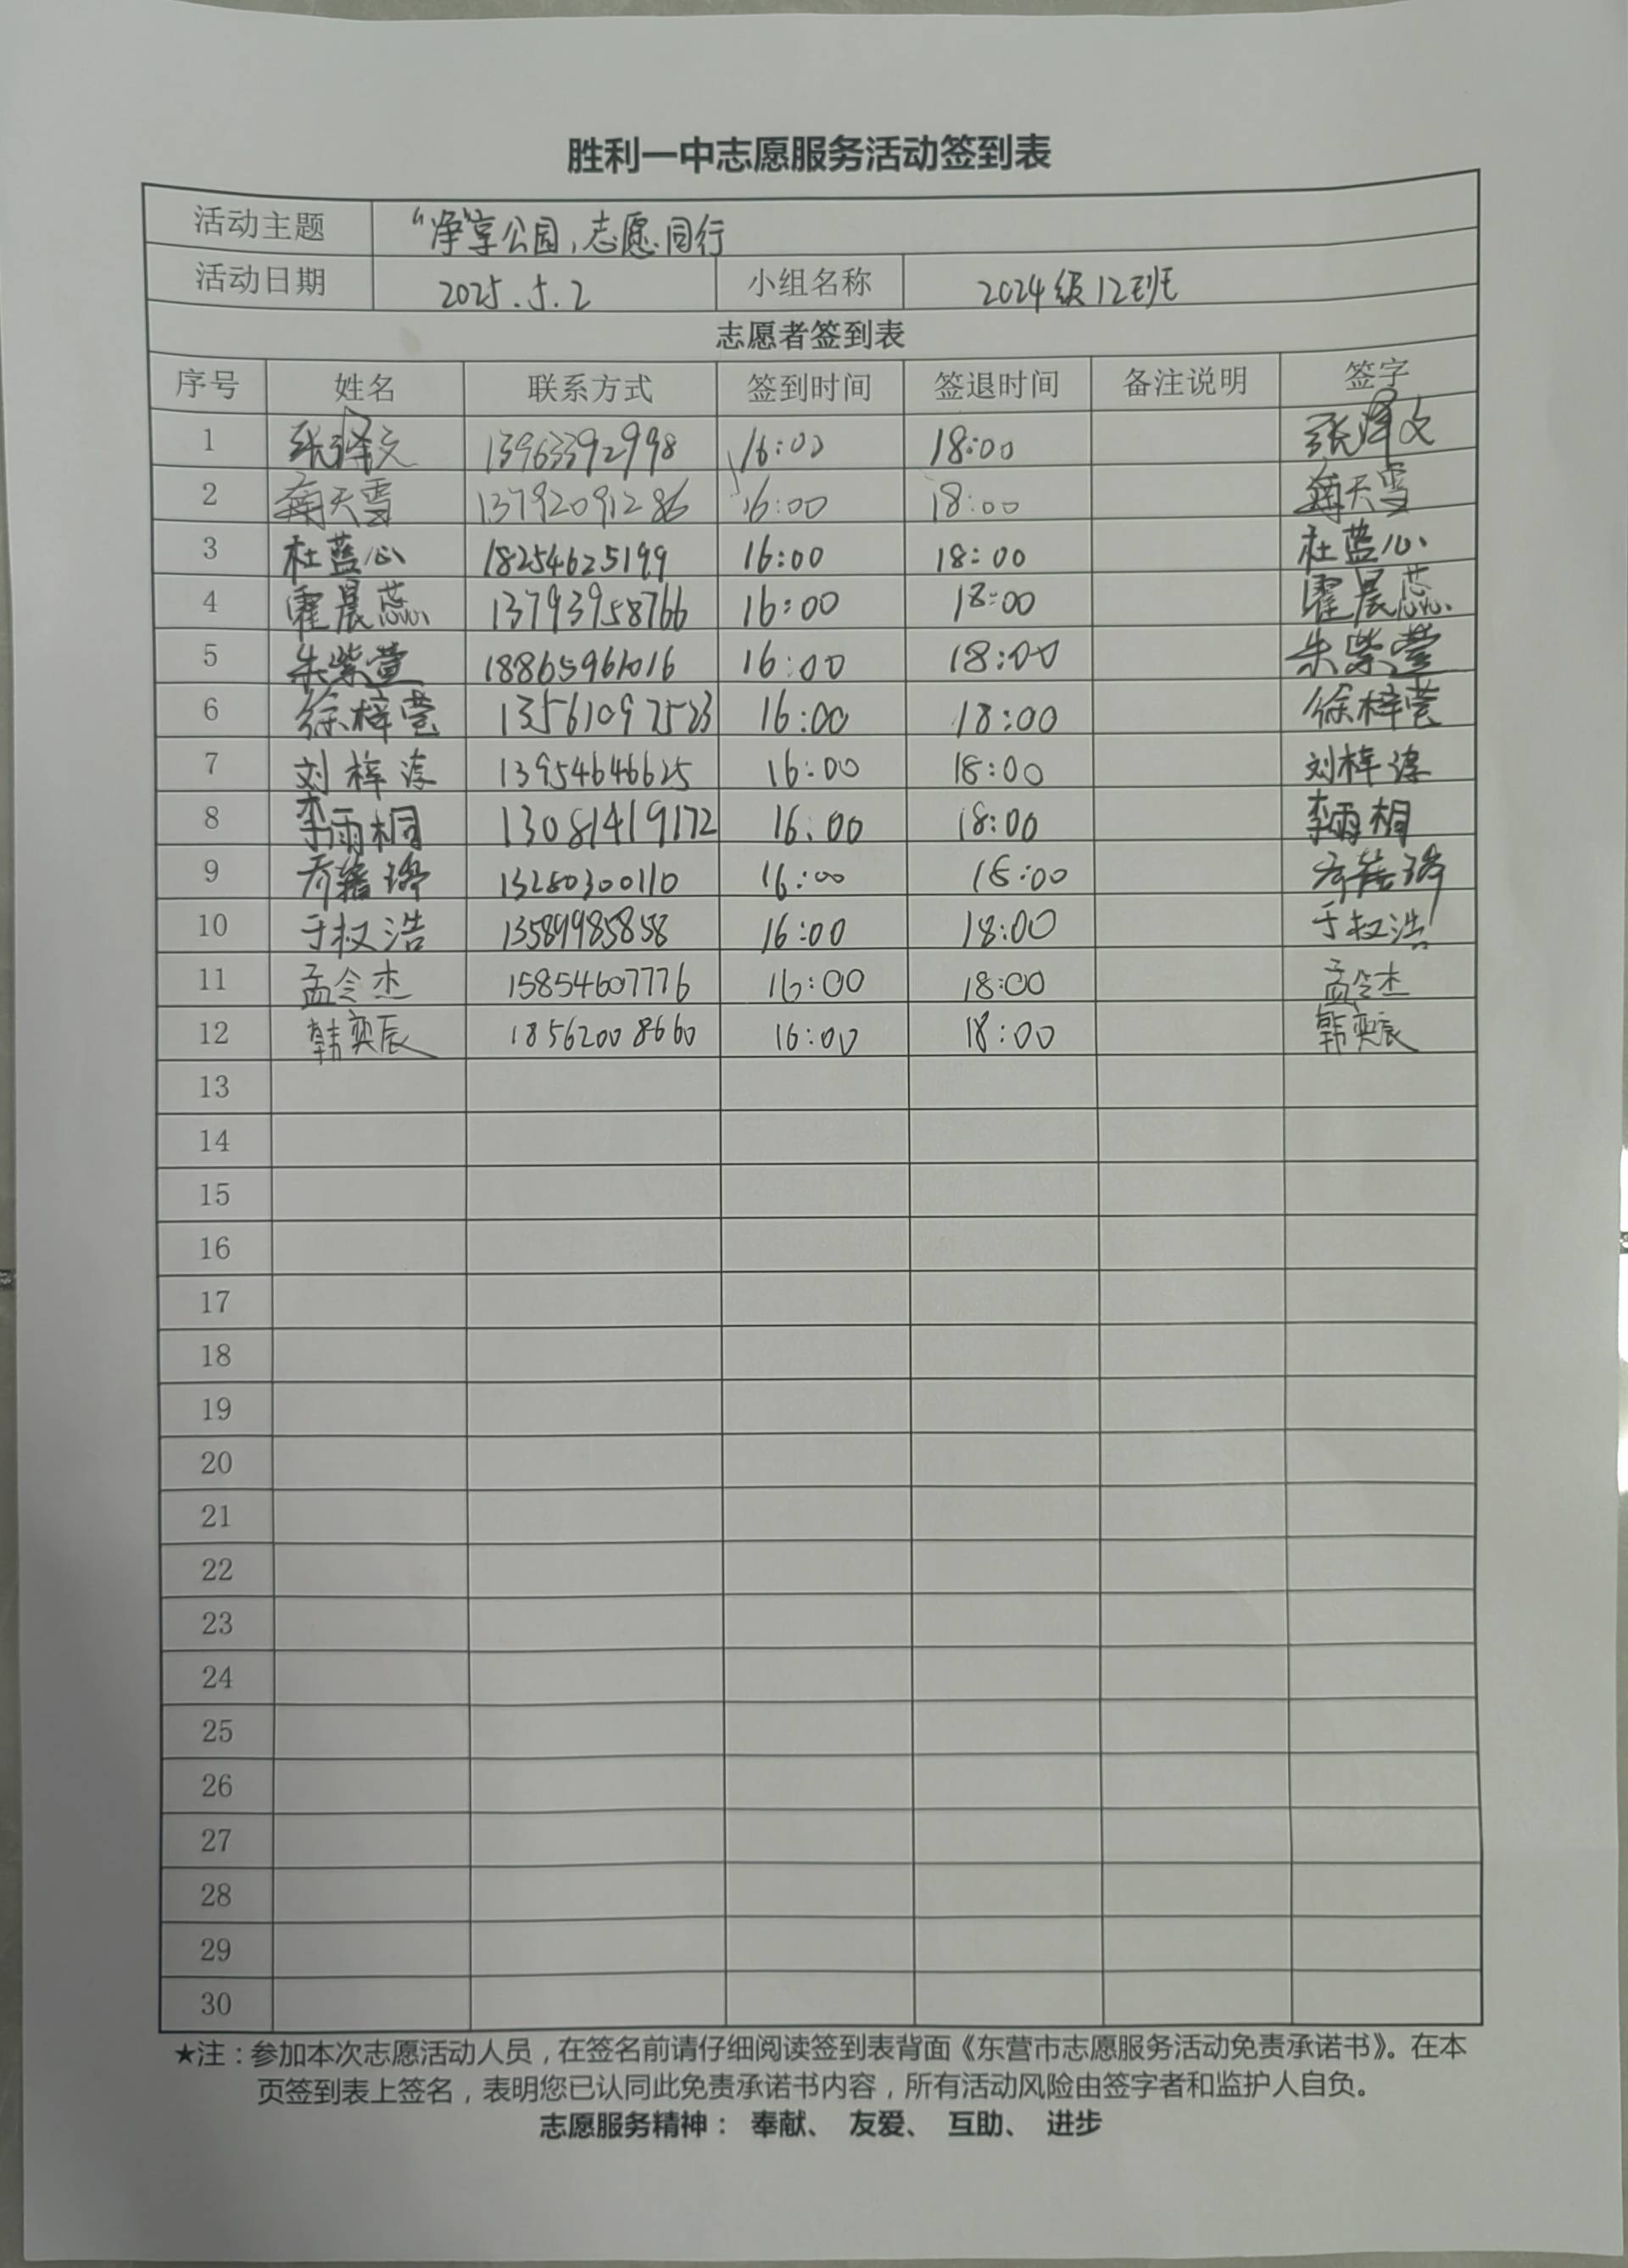 胜利一中志愿服务活动签到表
活动主题 “净”享公园,志愿同行
活动日期 2025.5.2 小组名称 2024级12班
志愿者签到表
序号 姓名 联系方式 签到时间 签退时间 备注说明 签字
1 张泽文 13963392998 16:00 18:00 张泽文
2 天雪 13792091286 16:00 18:00 天雪
3 杜蓝心 18254625199 16:00 18:00 杜蓝心
4 霍晨蕊 13793958766 16:00 18:00 霍晨蕊
5 朱紫萱 18865961016 16:00 18:00 朱紫萱
6 徐梓莹 16:00 18:00 徐梓莹
7 刘梓淳 13954646625 16:00 18:00 刘梓淳
8 李雨桐 13081419172 16:00 18:00 李雨桐
9 13280300110 16:00 18:00
10 于权浩 13589985858 16:00 18:00 于权浩
11 孟令杰 15854607776 16:00 18:00 孟令杰
12 韩奕辰 18562008660 16:00 18:00 韩奕辰
13
14
15
16
17
18
19
20
21
22
23
24
25
26
27
28
29
30
★注：参加本次志愿活动人员，在签名前请仔细阅读签到表背面《东营市志愿服务活动免责承诺书》。在本
页签到表上签名，表明您已认同此免责承诺书内容，所有活动风险由签字者和监护人自负。
志愿服务精神： 奉献、 友爱、 互助、 进步